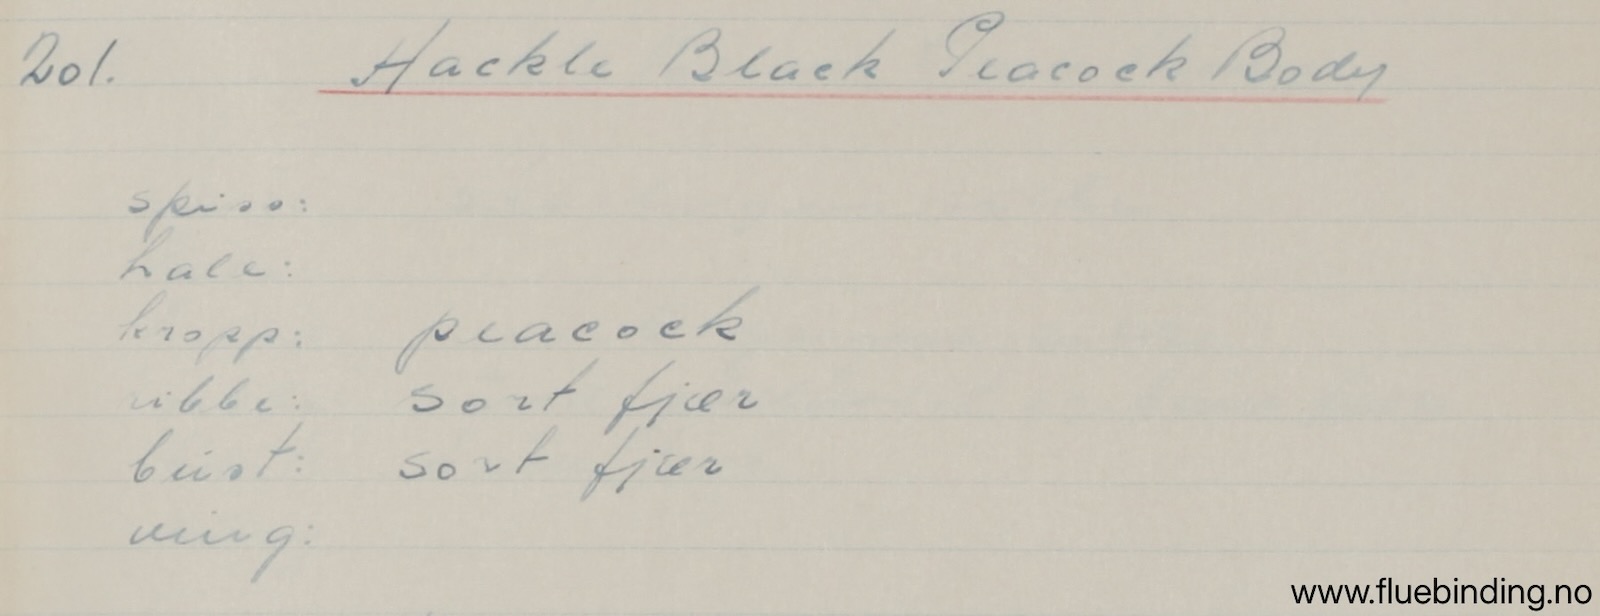 201. Hackle Black Peacock Body
spiss:
hale:
kropp: peacock
ribbe: sort fjær
bust: sort fjær
ving:
www.fluebinding.no